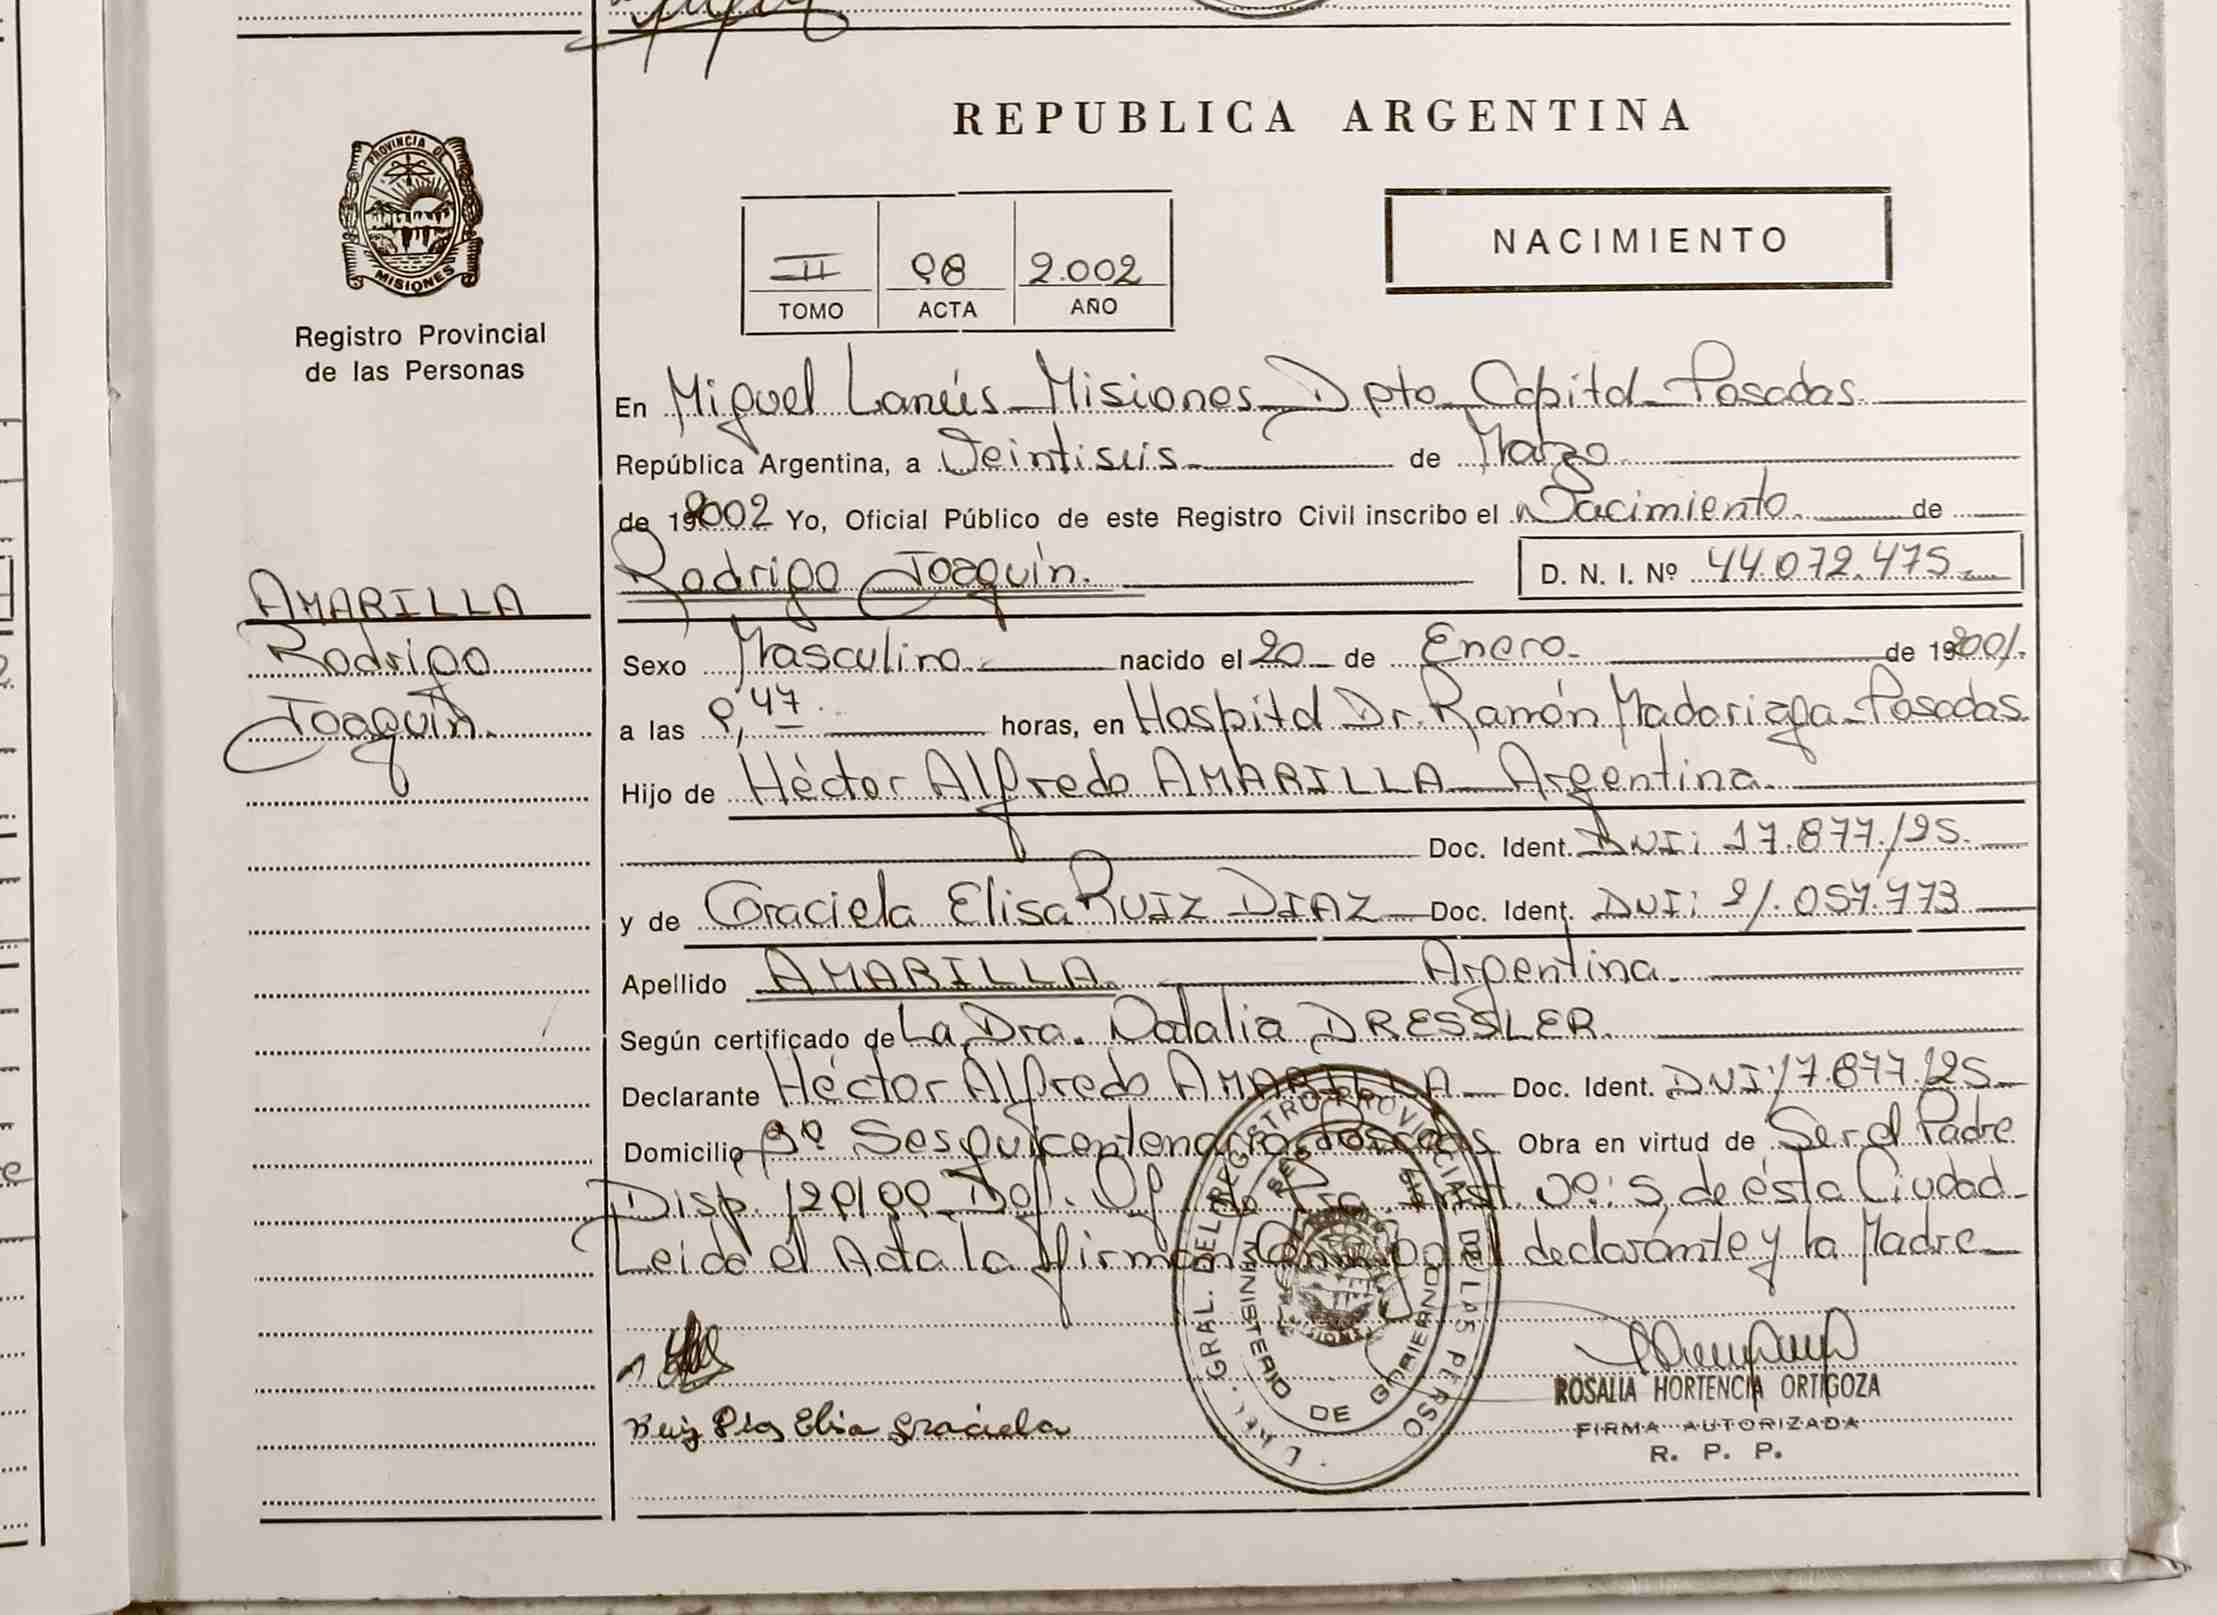 REPUBLICA ARGENTINA
PROVINCIA DE
MISIONES
Registro Provincial
de las Personas
NACIMIENTO
II 98 2.002
TOMO ACTA AÑO
En Miguel Lanús - Misiones - Dpto Capital - Posadas
República Argentina, a Veintiseis de Marzo
de 2002 Yo, Oficial Público de este Registro Civil inscribo el Nacimiento de
Rodrigo Joaquín. D. N. I. Nº 44.072.475
AMARILLA
Rodrigo
Joaquín.
Sexo Masculino nacido el 20 de Enero de 2001.
a las 9,47 horas, en Hospital Dr. Ramón Madariaga - Posadas.
Hijo de Héctor Alfredo AMARILLA - Argentina.
Doc. Ident. DNI: 17.877.125.
y de Graciela Elisa RUIZ DIAZ - Doc. Ident. DNI: 21.057.773
Apellido AMARILLA Argentina.
Según certificado de La Dra. Nadalia DRESSLER.
Declarante Héctor Alfredo AMARILLA - Doc. Ident. DNI: 17.877.125
Domicilio Bº Sesquicentenario - Posadas Obra en virtud de Ser el Padre
Disp. 129/99 - Def. Of de Inst. Nº: 5 de ésta Ciudad -
Leida el Acta la firman Conmigo el declarante y la Madre
Ruiz Diaz Elisa Graciela
DIREC. GRAL. DEL REGISTRO PROVINCIAL DE LAS PERSO
MINISTERIO DE GOBIERNO
ROSALIA HORTENCIA ORTIGOZA
FIRMA AUTORIZADA
R. P. P.